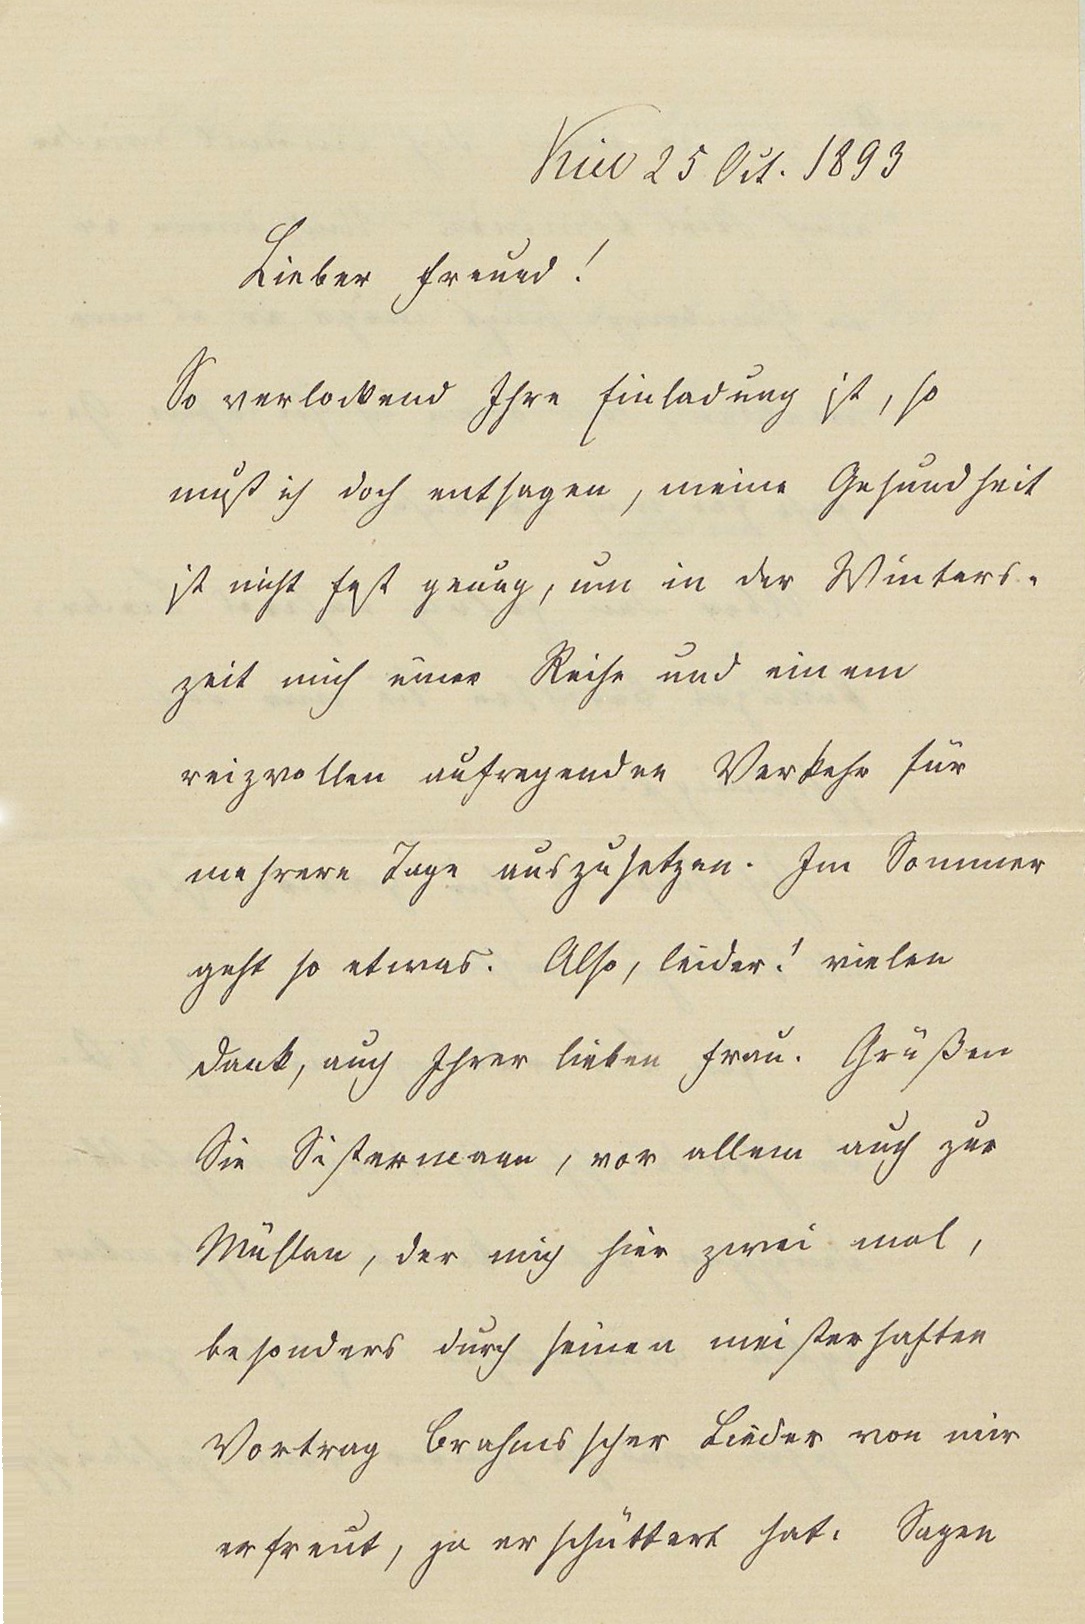 Kiel 25 Oct. 1893
Lieber Freund!
So verlockend Ihre Einladung ist, so
muß ich doch entsagen, meine Gesundheit
ist nicht fest genug, um in der Winters-
zeit mich einer Reise und einem
reizvollen aufregenden Verkehr für
mehrere Tage auszusetzen. Im Sommer
geht so etwas. Also, leider! vielen
Dank, auch Ihrer lieben Frau. Grüßen
Sie Sistermann, vor allem auch zur
der mich hier zwei mal,
besonders durch seinen meisterhaften
Vortrag Brahmsscher Lieder von mir
erfreut, ja erschüttert hat. Sagen